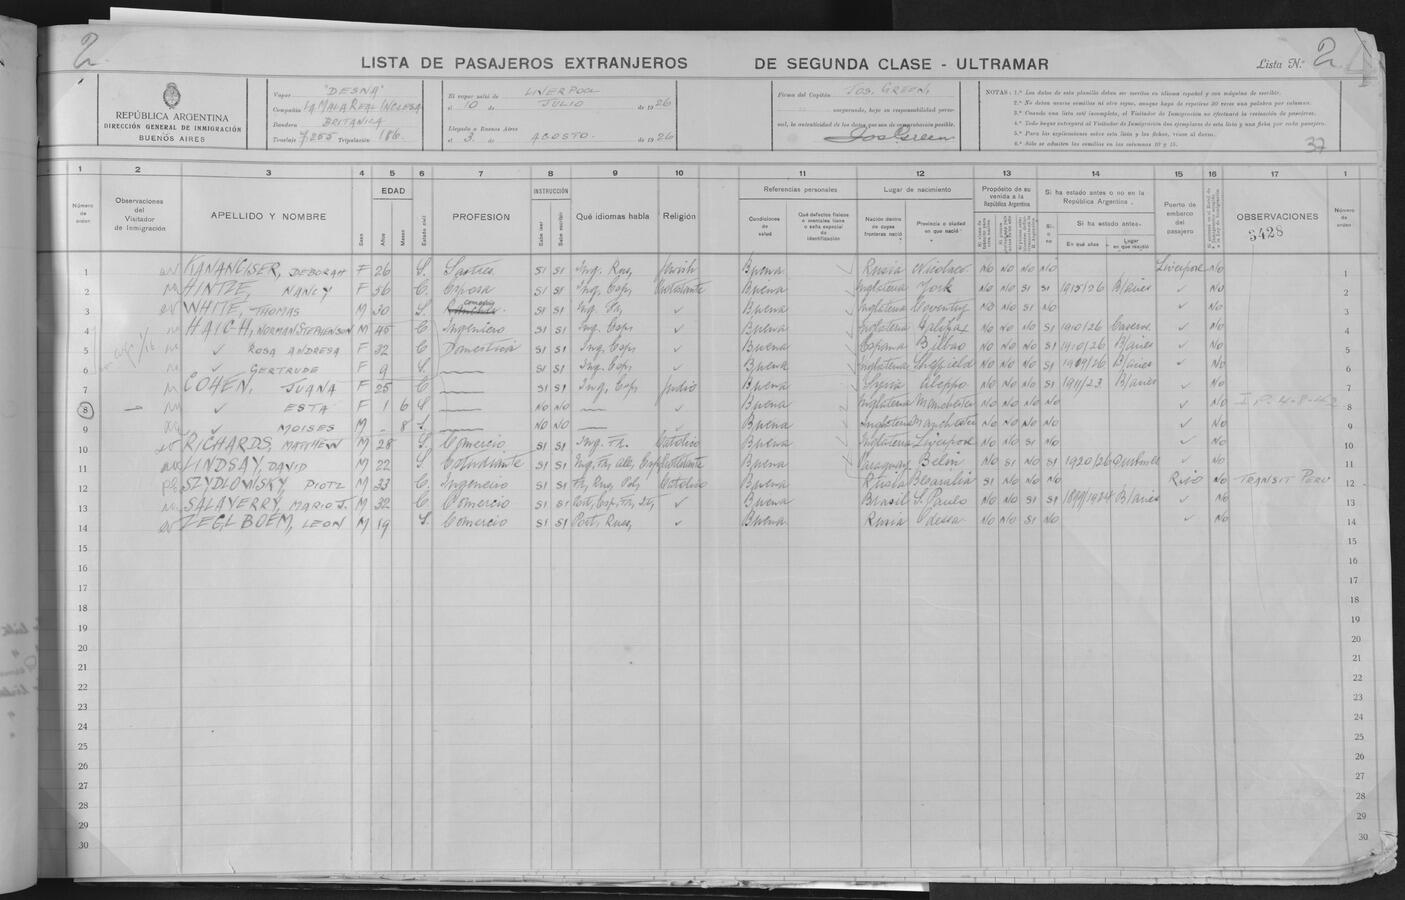 2
LISTA DE PASAJEROS EXTRANJEROS DE SEGUNDA CLASE - ULTRAMAR Lista N.° 2
REPÚBLICA ARGENTINA
DIRECCIÓN GENERAL DE INMIGRACIÓN
BUENOS AIRES
Vapor "DESNA"
Compañía LA MALA REAL INGLESA
Bandera BRITANICA
Tonelaje 7255 Tripulación 186
El vapor salió de LIVERPOOL
el 10 de JULIO de 1926
Llegado a Buenos Aires
el 3 de AGOSTO de 1926
Firma del Capitán JOS. GREEN,
asegurando, bajo su responsabilidad personal, la autenticidad de los datos que son de comprobación posible.
Jos Green
NOTAS: 1.ª Los datos de esta planilla deben ser escritos en idioma español y con máquina de escribir.
2.ª No deben usarse comillas ni otro signo, aunque haya de repetirse 30 veces una palabra por columna.
3.ª Cuando una lista esté incompleta, el Visitador de Inmigración no efectuará la revisación de pasajeros.
4.ª Todo buque entregará al Visitador de Inmigración dos ejemplares de esta lista y una ficha por cada pasajero.
5.ª Para las explicaciones sobre esta lista y las fichas, véase al dorso.
6.ª Sólo se admiten las comillas en las columnas 10 y 15.
37
1 2 3 4 5 6 7 8 9 10 11 12 13 14 15 16 17 1
Número de orden
Observaciones del Visitador de Inmigración
APELLIDO Y NOMBRE
Sexo
EDAD
Años Meses
Estado civil
PROFESIÓN
INSTRUCCIÓN
Sabe leer Sabe escribir
Qué idiomas habla
Religión
Referencias personales
Condiciones de salud
Qué defectos físicos o mentales tiene o seña especial de identificación
Lugar de nacimiento
Nación dentro de cuyas fronteras nació
Provincia o ciudad en que nació
Propósito de su venida a la República Argentina
Si ha estado antes o no en la República Argentina
Sí o no
Si ha estado antes
En qué años Lugar en que residió
Puerto de embarco del pasajero
OBSERVACIONES
3428
Número de orden
1 KANANCISER, DEBORAH F 26 S. Sastres SI SI Ing. Rus, Jewish Buena Rusia Nicolaev NO NO NO NO Liverpool No 1
2 HINTZE, NANCY F 56 C. Esposa SI SI Ing, Esp, Protestante Buena Inglaterra York NO NO SI SI 1915/26 B/aires ✓ No 2
3 WHITE, THOMAS M 30 S. Comercio SI SI Ing. Fr, ✓ Buena Inglaterra Coventry NO NO SI NO ✓ No 3
4 HAIGH, NORMAN STEPHENSON M 45 C Ingeniero SI SI Ing. Esp, ✓ Buena Inglaterra Halifax NO NO NO SI 1910/26 ✓ No 4
5 ✓ ROSA ANDRESA F 32 C Domestica SI SI Ing, Esp, ✓ Buena España Bilbao NO NO NO SI 1910/26 B/aires ✓ No 5
6 ✓ GERTRUDE F 9 S. SI SI Ing, Esp, ✓ Buena Inglaterra Sheffield NO NO NO SI 1909/26 B/aires ✓ No 6
7 COHEN, JUANA F 25 C SI SI Ing, Esp, Judio Buena Syria Aleppo NO NO NO SI 1911/23 B/aires ✓ No 7
8 ✓ ESTA F 1 6 S. NO NO — ✓ Buena Inglaterra Manchester NO NO NO NO ✓ No 8
9 ✓ MOISES M - 8 S. NO NO — ✓ Buena Inglaterra Manchester NO NO NO NO ✓ No 9
10 RICHARDS, MATTHEW M 28 S. Comercio SI SI Ing. Fr. Catolico Buena Inglaterra Liverpool NO NO SI NO ✓ No 10
11 LINDSAY, DAVID M 22 S. Estudiante SI SI Ing, Fr, Ale, Esp, Protestante Buena Paraguay Belen NO SI NO SI 1920/26 ✓ No 11
12 SZYDLOWSKY, PIOTR M 33 C. Ingeniero SI SI Fr, Rus, Pol, Catolico Buena Rusia SI NO NO NO Rio No TRANSIT PERU 12
13 SALAYERRY, MARIO J. M 32 C. Comercio SI SI Port, Esp, Fr, It, ✓ Buena Brasil S. Paulo NO NO SI SI 1899/1924 B/aires ✓ No 13
14 ZEGLBOEM, LEON M 19 S. Comercio SI SI Port, Rus, ✓ Buena Rusia Odessa NO NO SI NO ✓ No 14
15 15
16 16
17 17
18 18
19 19
20 20
21 21
22 22
23 23
24 24
25 25
26 26
27 27
28 28
29 29
30 30